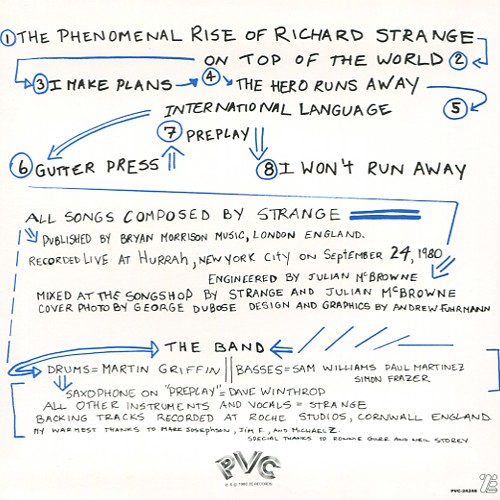 ① THE PHENOMENAL RISE OF RICHARD STRANGE
ON TOP OF THE WORLD ②
③ I MAKE PLANS ④ THE HERO RUNS AWAY
INTERNATIONAL LANGUAGE ⑤
⑦ PREPLAY
⑥ GUTTER PRESS ⑧ I WON'T RUN AWAY
ALL SONGS COMPOSED BY STRANGE
PUBLISHED BY BRYAN MORRISON MUSIC, LONDON ENGLAND.
RECORDED LIVE AT HURRAH, NEW YORK CITY ON SEPTEMBER 24, 1980
ENGINEERED BY JULIAN McBROWNE
MIXED AT THE SONGSHOP BY STRANGE AND JULIAN McBROWNE
COVER PHOTO BY GEORGE DUBOSE DESIGN AND GRAPHICS BY ANDREW FUHRMANN
THE BAND
DRUMS = MARTIN GRIFFIN || BASSES = SAM WILLIAMS PAUL MARTINEZ
SIMON FRAZER
SAXOPHONE ON "PREPLAY" = DAVE WINTHROP
ALL OTHER INSTRUMENTS AND VOCALS = STRANGE
BACKING TRACKS RECORDED AT ROCHE STUDIOS, CORNWALL ENGLAND
MY WARMEST THANKS TO MARK JOSEPHSON, JIM F., AND MICHAEL Z.
SPECIAL THANKS TO AND NEIL STOREY
PVC
PVC-24246